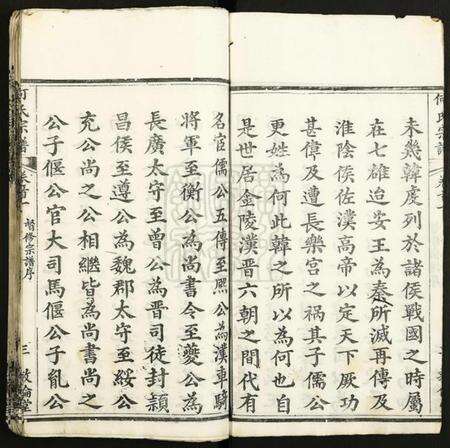 何氏宗譜
未幾韓虔列於諸侯戰國之時屬
在七雄迨安王為秦所滅再傳及
淮陰侯佐漢高帝以定天下厥功
甚偉及遭長樂宮之禍其子儒公
更姓為何此韓之所以為何也自
是世居金陵漢晉六朝之間代有
名宦儒公五傳至熙公為漢車騎
將軍至衡公為尚書令至夔公為
長廣太守至曾公為晉司徒封潁
昌侯至遵公為魏郡太守至綏公
充公尚之公相繼皆為尚書尚之
公子偃公官大司馬偃公子胤公
何氏宗譜
督修宗譜序
三